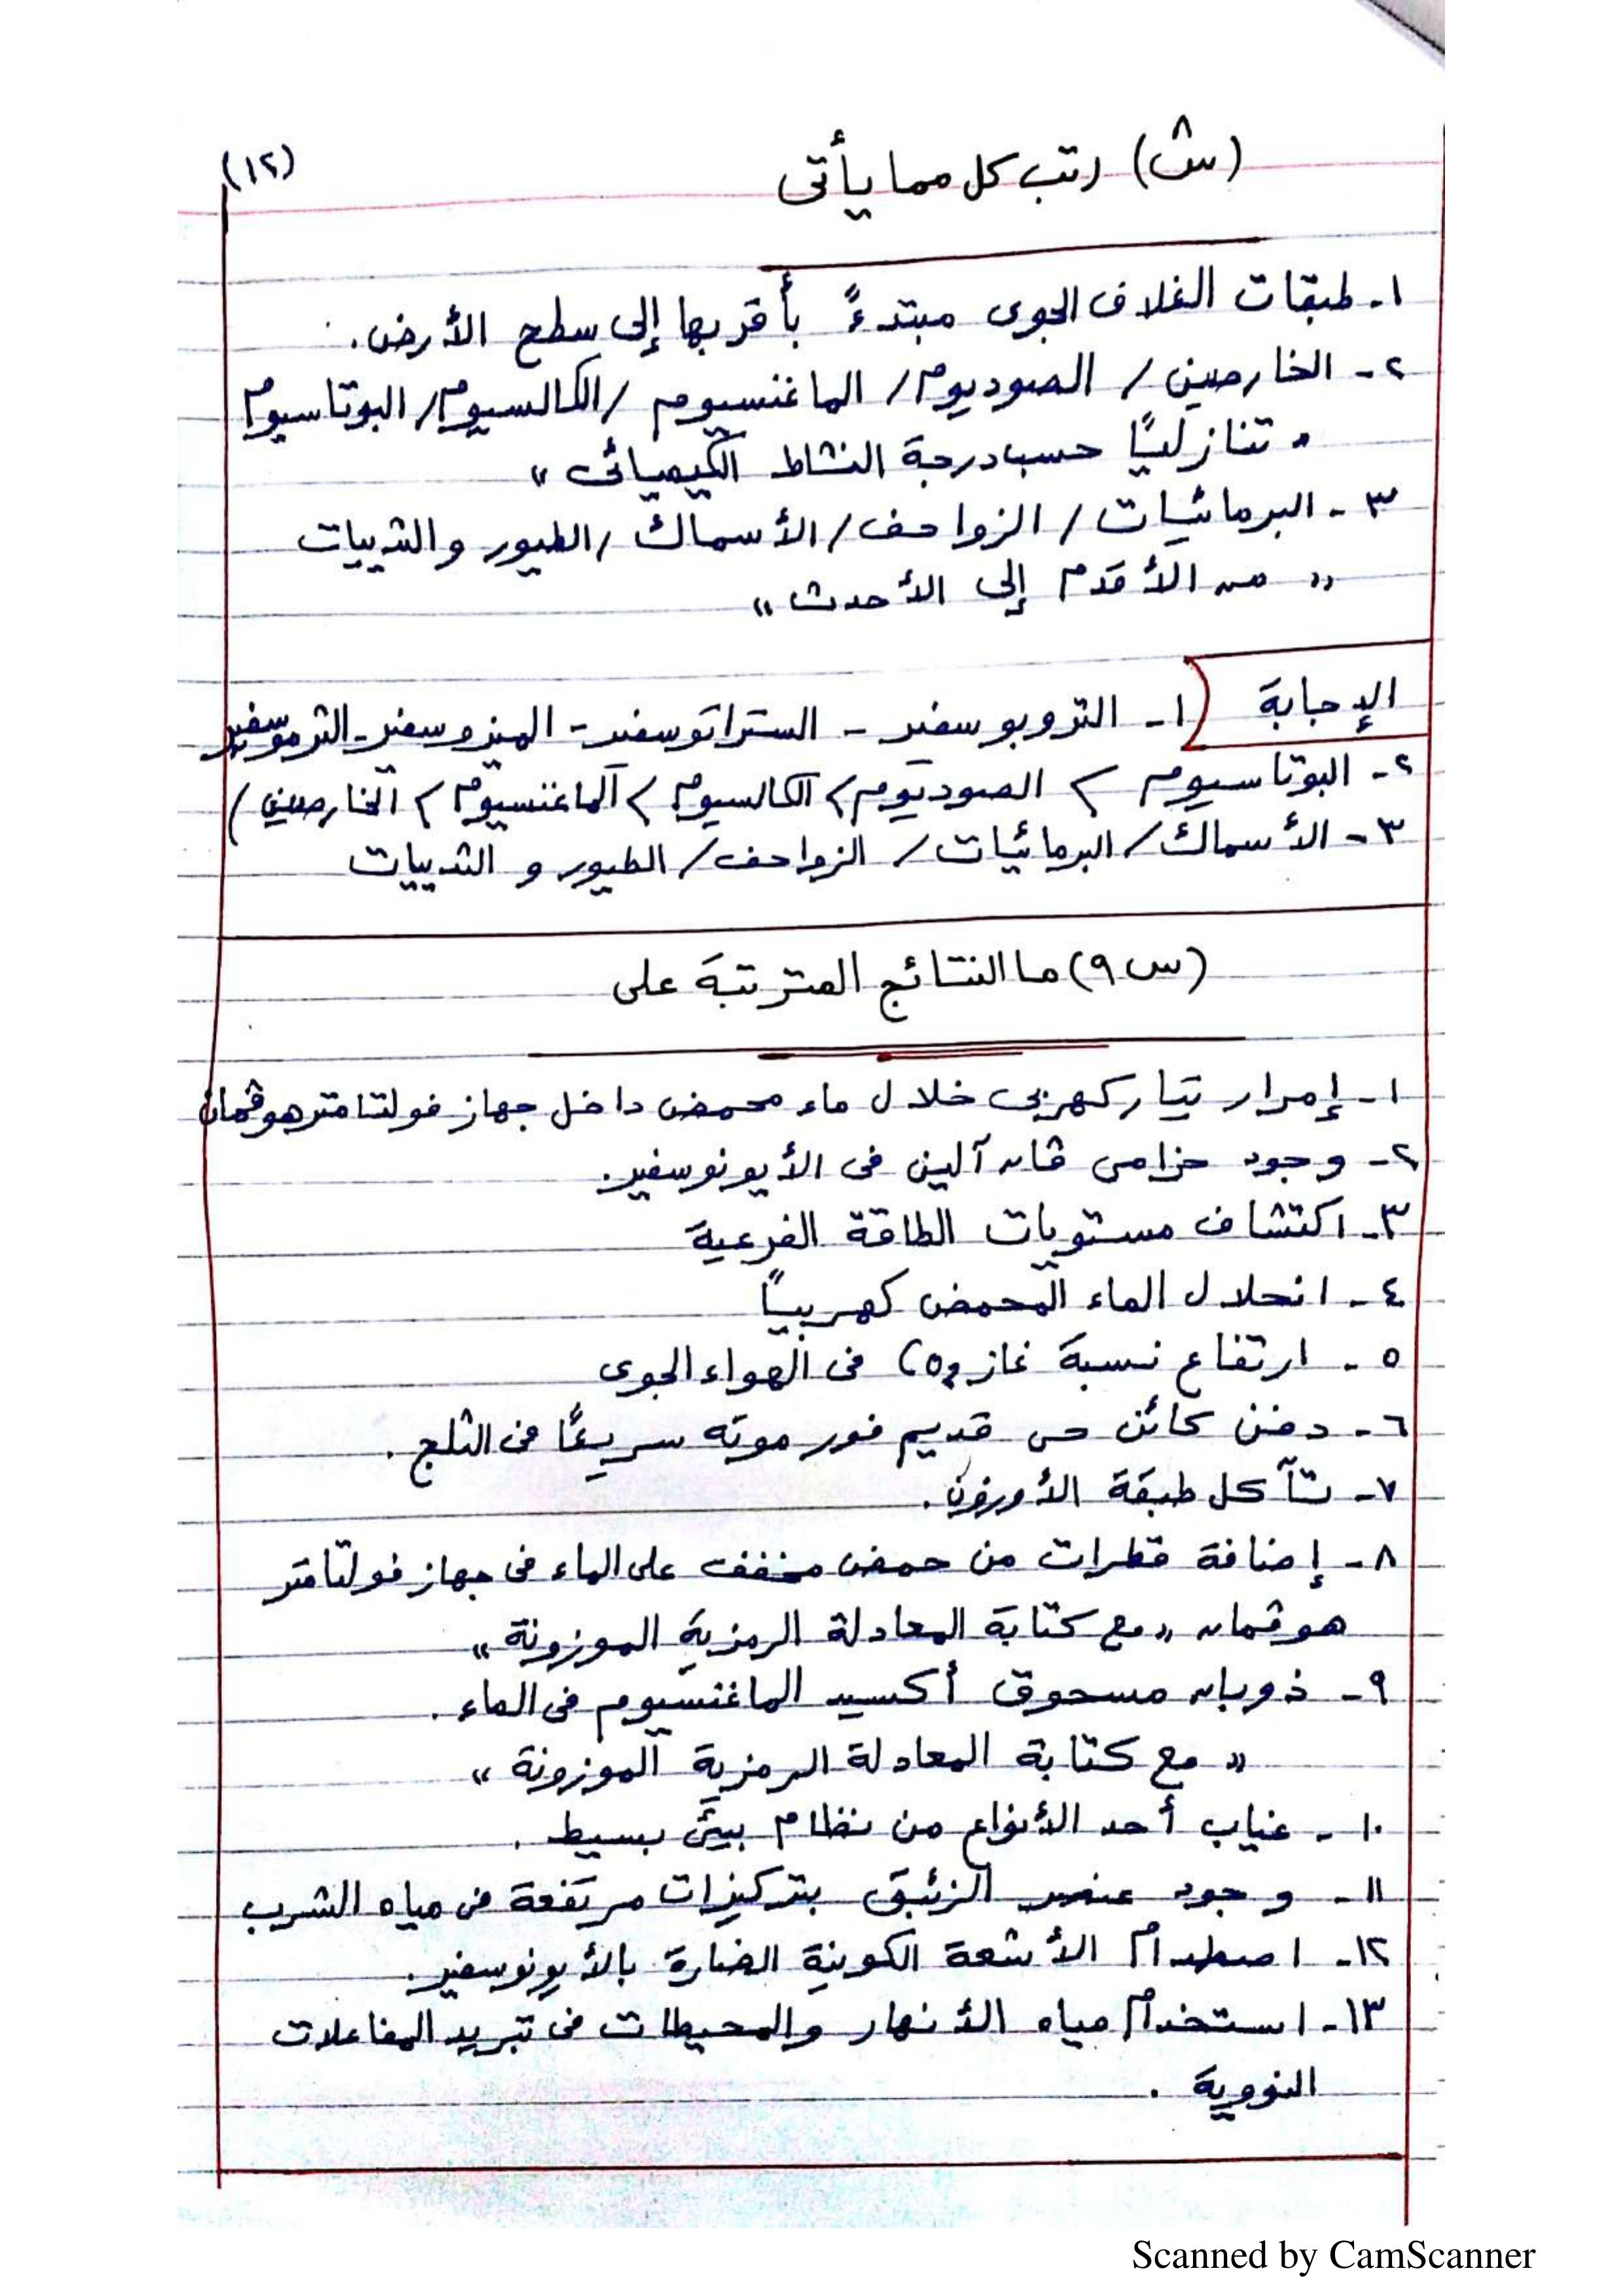 (١٢)
(س٨) رتب كل مما يأتى
١- طبقات الغلاف الجوى مبتدءً بأقربها إلى سطح الأرض.
٢- الخارصين / الصوديوم / الماغنسيوم / الكالسيوم / البوتاسيوم
" تنازليًا حسب درجة النشاط الكيميائى "
٣- البرمائيات / الزواحف / الأسماك / الطيور والثدييات
" من الأقدم إلى الأحدث "
الإجابة ١- التروبوسفير - الستراتوسفير - الميزوسفير - الثرموسفير
٢- البوتاسيوم > الصوديوم > الكالسيوم > الماغنسيوم > الخارصين )
٣- الأسماك / البرمائيات / الزواحف / الطيور و الثدييات
(س٩) ما النتائج المترتبة على
١- إمرار تيار كهربى خلال ماء محمض داخل جهاز فولتامتر هوفمان
٢- وجود حزامى ڤان آلين فى الأيونوسفير.
٣- اكتشاف مستويات الطاقة الفرعية
٤- انحلال الماء المحمض كهربياً
٥- ارتفاع نسبة غاز CO2 فى الهواء الجوى
٦- دفن كائن حى قديم فور موته سريعًا فى الثلج.
٧- تآكل طبقة الأوزون.
٨- إضافة قطرات من حمض مخفف على الماء فى جهاز فولتامتر
هوفمان " مع كتابة المعادلة الرمزية الموزونة "
٩- ذوبان مسحوق أكسيد الماغنسيوم فى الماء.
" مع كتابة المعادلة الرمزية الموزونة "
١٠- غياب أحد الأنواع من نظام بيئى بسيط.
١١- وجود عنصر الزئبق بتركيزات مرتفعة فى مياه الشرب
١٢- اصطدام الأشعة الكونية الضارة بالأيونوسفير.
١٣- استخدام مياه الأنهار والمحيطات فى تبريد المفاعلات
النووية.
Scanned by CamScanner